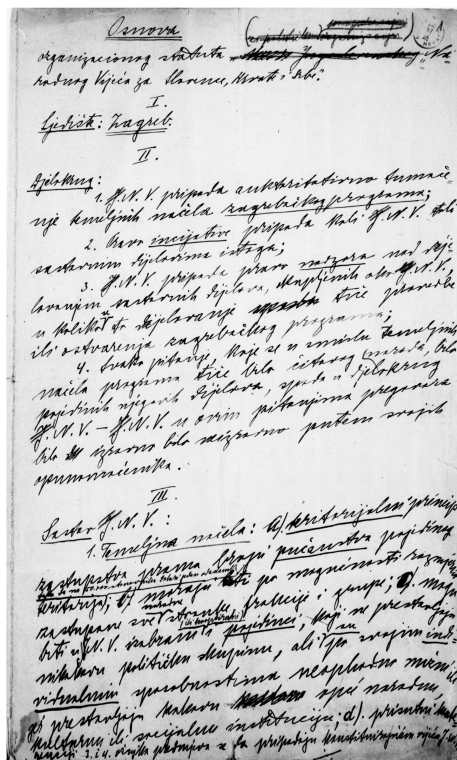 Osnova
organizacionog statuta Na-
rodnog Vijeća za Slovence, Hrvate i Srbe."
I.
Sjedište: Zagreb.
II.
Djelokrug:
1. N. V. pripada auktoritativno tumače-
nje temeljnih načela zagrebačkog programa;
2. Pravo incijative pripada koli N. V. toli
sastavnim dijelovima istoga;
3. N. V. pripada pravo nadzora nad dje-
lovanjem sastavnih dijelova, okupljenih oko N. V.,
u koliko se djelovanje tiče provedbe
ili ostvarenja zagrebačkog programa;
4. Svako pitanje, koje se u smislu temeljnih
načela programa tiče bilo čitavog naroda, bilo
pojedinih njegovih dijelova, spada u djelokrug
N. V. – N. V. u ovim pitanjima pregovara
bilo izravno bilo neizravno putem svojih
opunomoćenika.
III.
Sastav N. V.:
1. Temeljna načela: a) teritorijalni princip
zastupstva prama broju pučanstva pojedinog
teritorija; b) moraju po mogućnosti razmjerno
zastupane sve stranke, frakcije i grupe; c) mogu
biti u N. V. izabrani i pojedinci, koji ne prestavljaju
nikakovu političku skupinu, ali su po svojim indi-
vidualnim sposobnostima neophodno nužni, ili
prestavljaju kakovu opće narodnu,
kulturnu ili socijalnu instituciju; d)